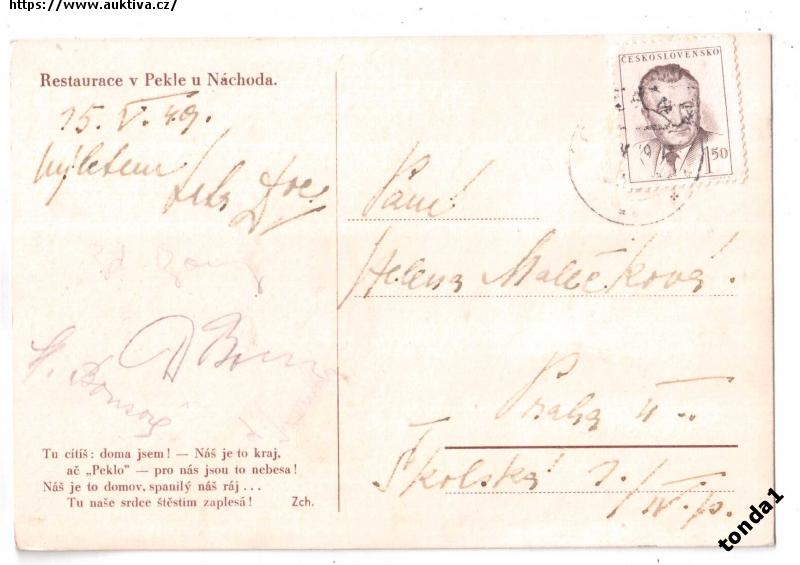 https://www.auktiva.cz/
Restaurace v Pekle u Náchoda.
15. V. 49.
ČESKOSLOVENSKO
1 50
Paní
Helena Malečková.
Praha II
Školská 1.
/IV. p.
Tu cítíš: doma jsem! — Náš je to kraj,
ač „Peklo" — pro nás jsou to nebesa!
Náš je to domov, spanilý náš ráj ...
Tu naše srdce štěstím zaplesá! Zch.
tonda1